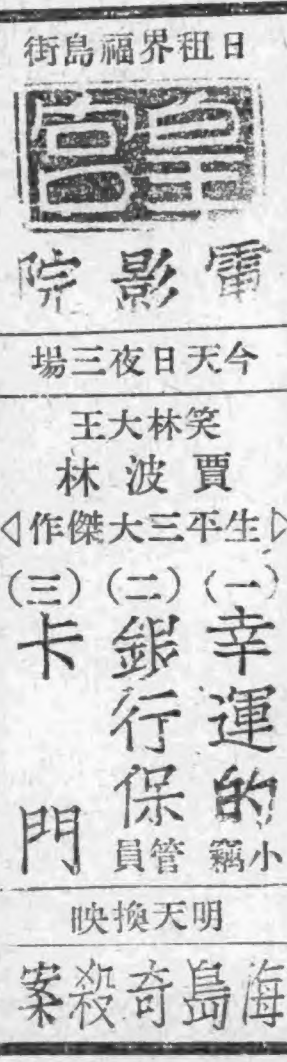 日租界福島街
皇宮
電影院
今天日夜三場
笑林大王
賈波林
生平三大傑作
(一)幸運的小竊
(二)銀行保管員
(三)卡門
明天換映
海島奇殺案